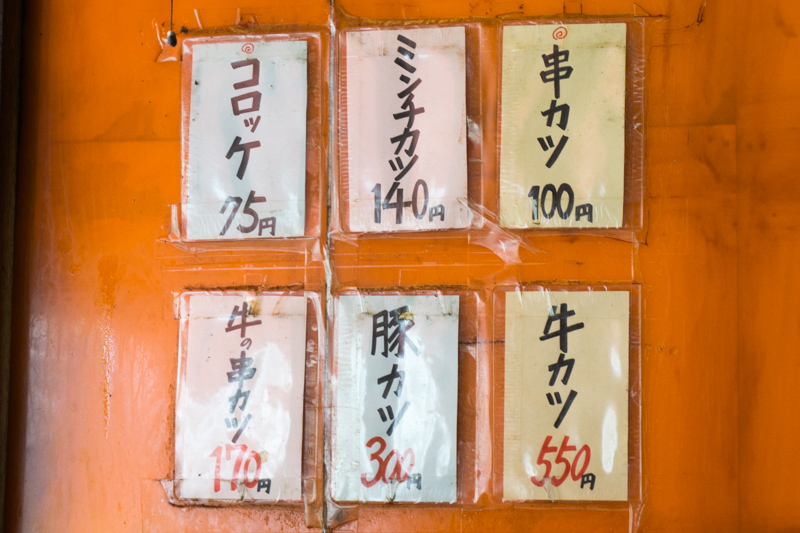 コロッケ
75円
ミンチカツ
140円
串カツ
100円
牛の串カツ
170円
豚カツ
300円
牛カツ
550円